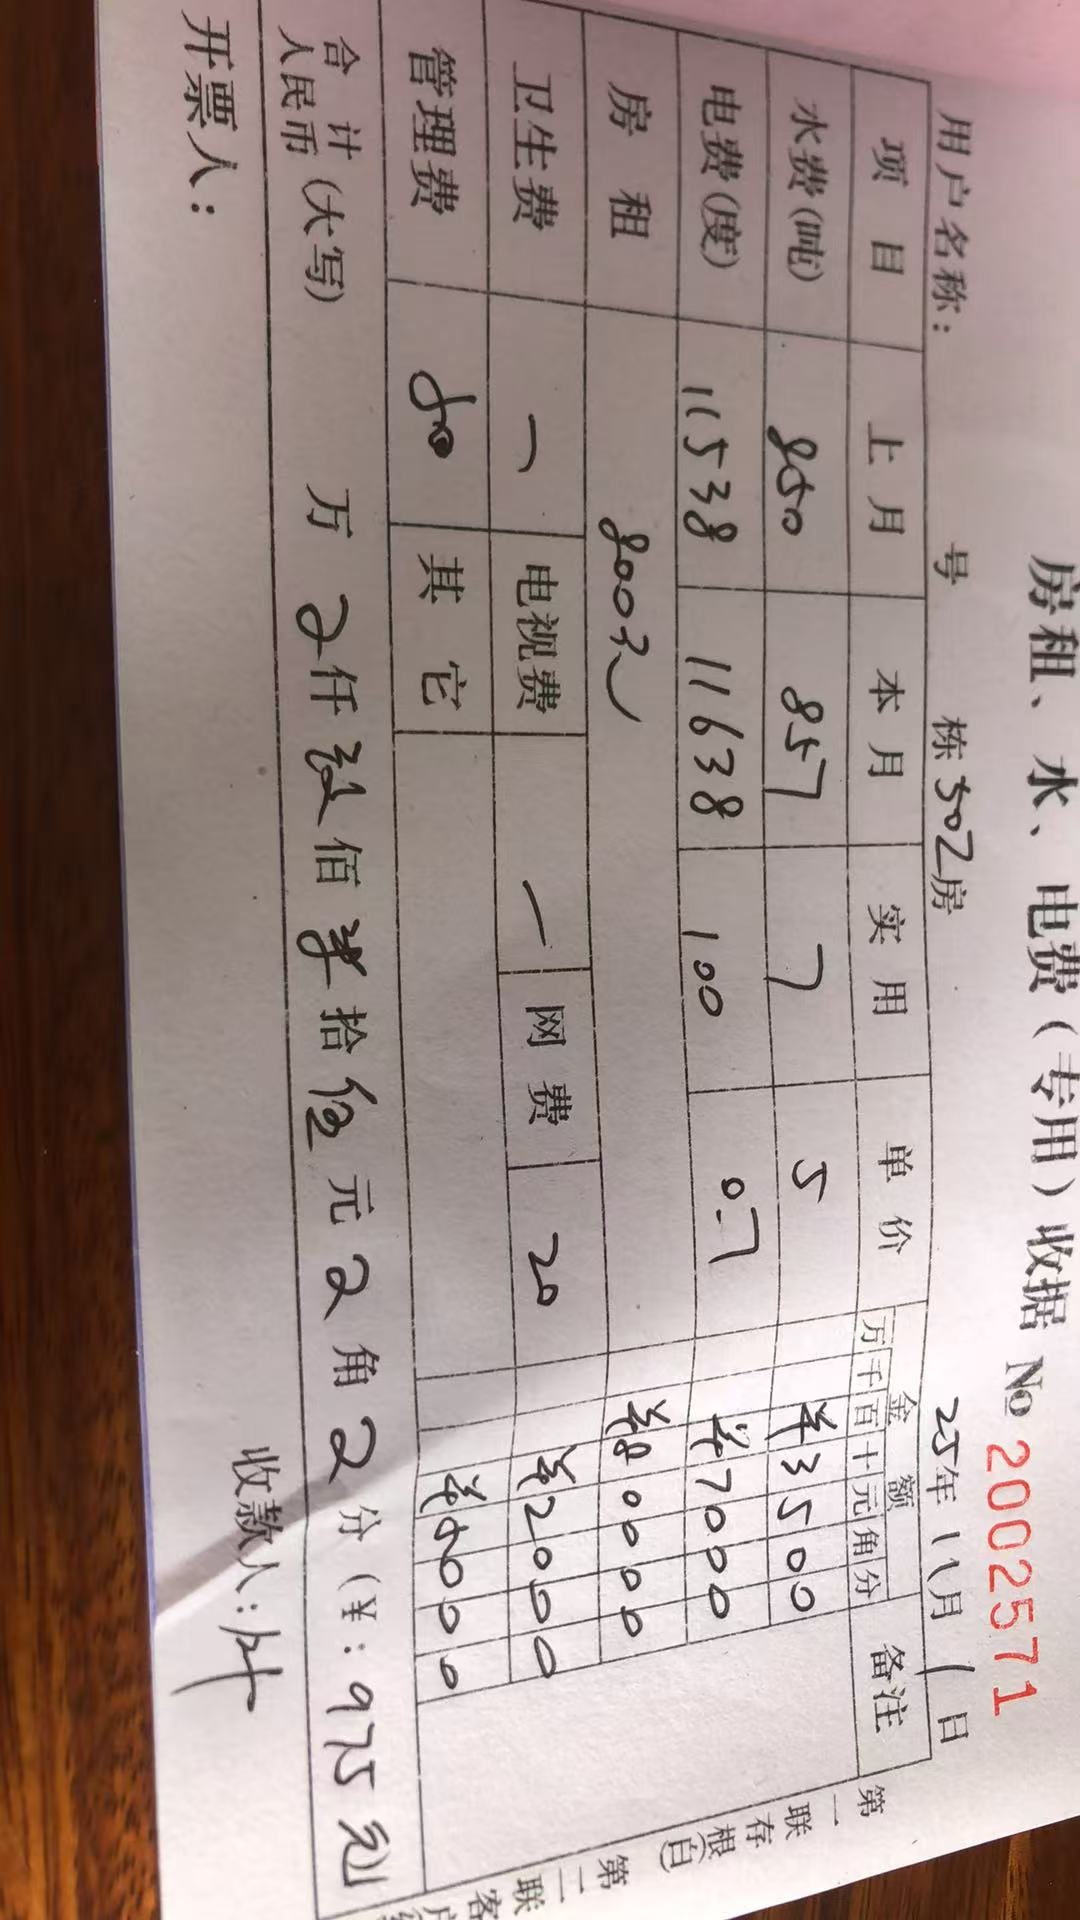 房租、水、电费(专用)收据 № 2002571
用户名称: 号 栋502房 25年11月1日
项目 上月 本月 实用 单价 金额 备注
万 千 百 十 元 角 分
水费(吨) 850 857 7 5 ¥3500
电费(度) 11538 11638 100 0.7 ¥7000
房租 800元 ¥80000
卫生费 一 电视费 一 网费 20 ¥2000
管理费 50 其它 ¥5000
合计人民币(大写) 万 仟 玖佰 柒拾 伍元 角 分(¥:975元
开票人: 收款人:
第一联存根(白) 第二联客户